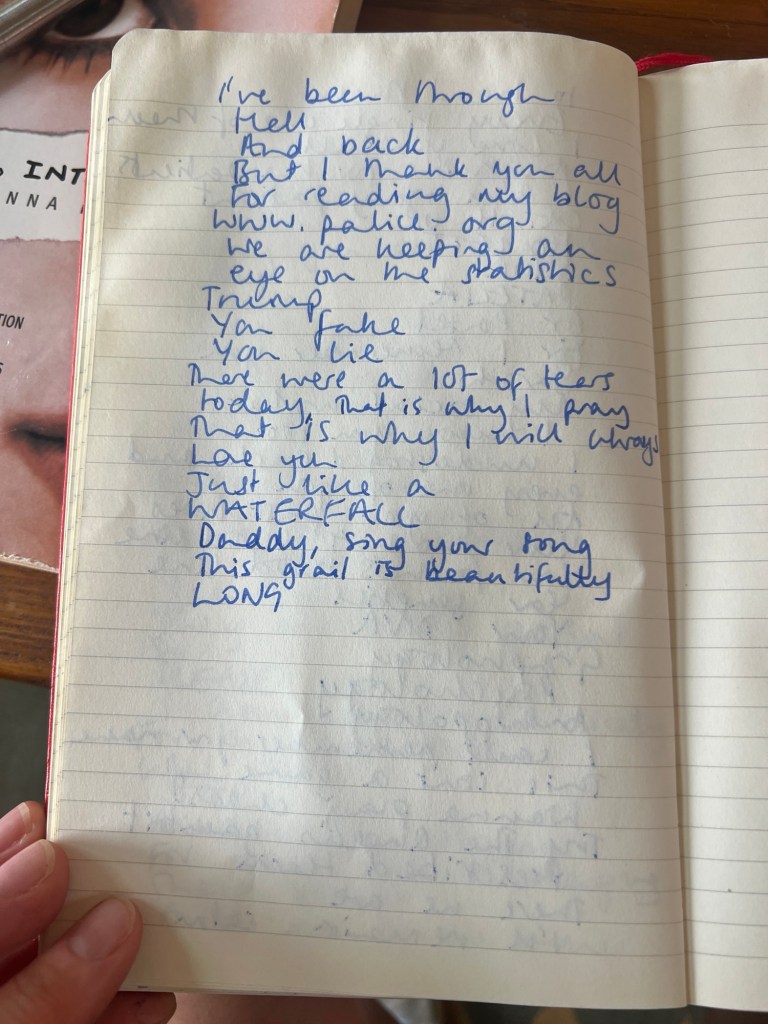 INT
NNA
TION
S
I've been through
Hell
And back
But I thank you all
For reading my blog
www. police. org
We are keeping an
eye on the statistics
Trump
You fake
You lie
There were a lot of tears
today, that is why I pray
That is why I will always
Love you
Just like a
WATERFALL
Daddy, sing your song
This grail is beautifully
LONG